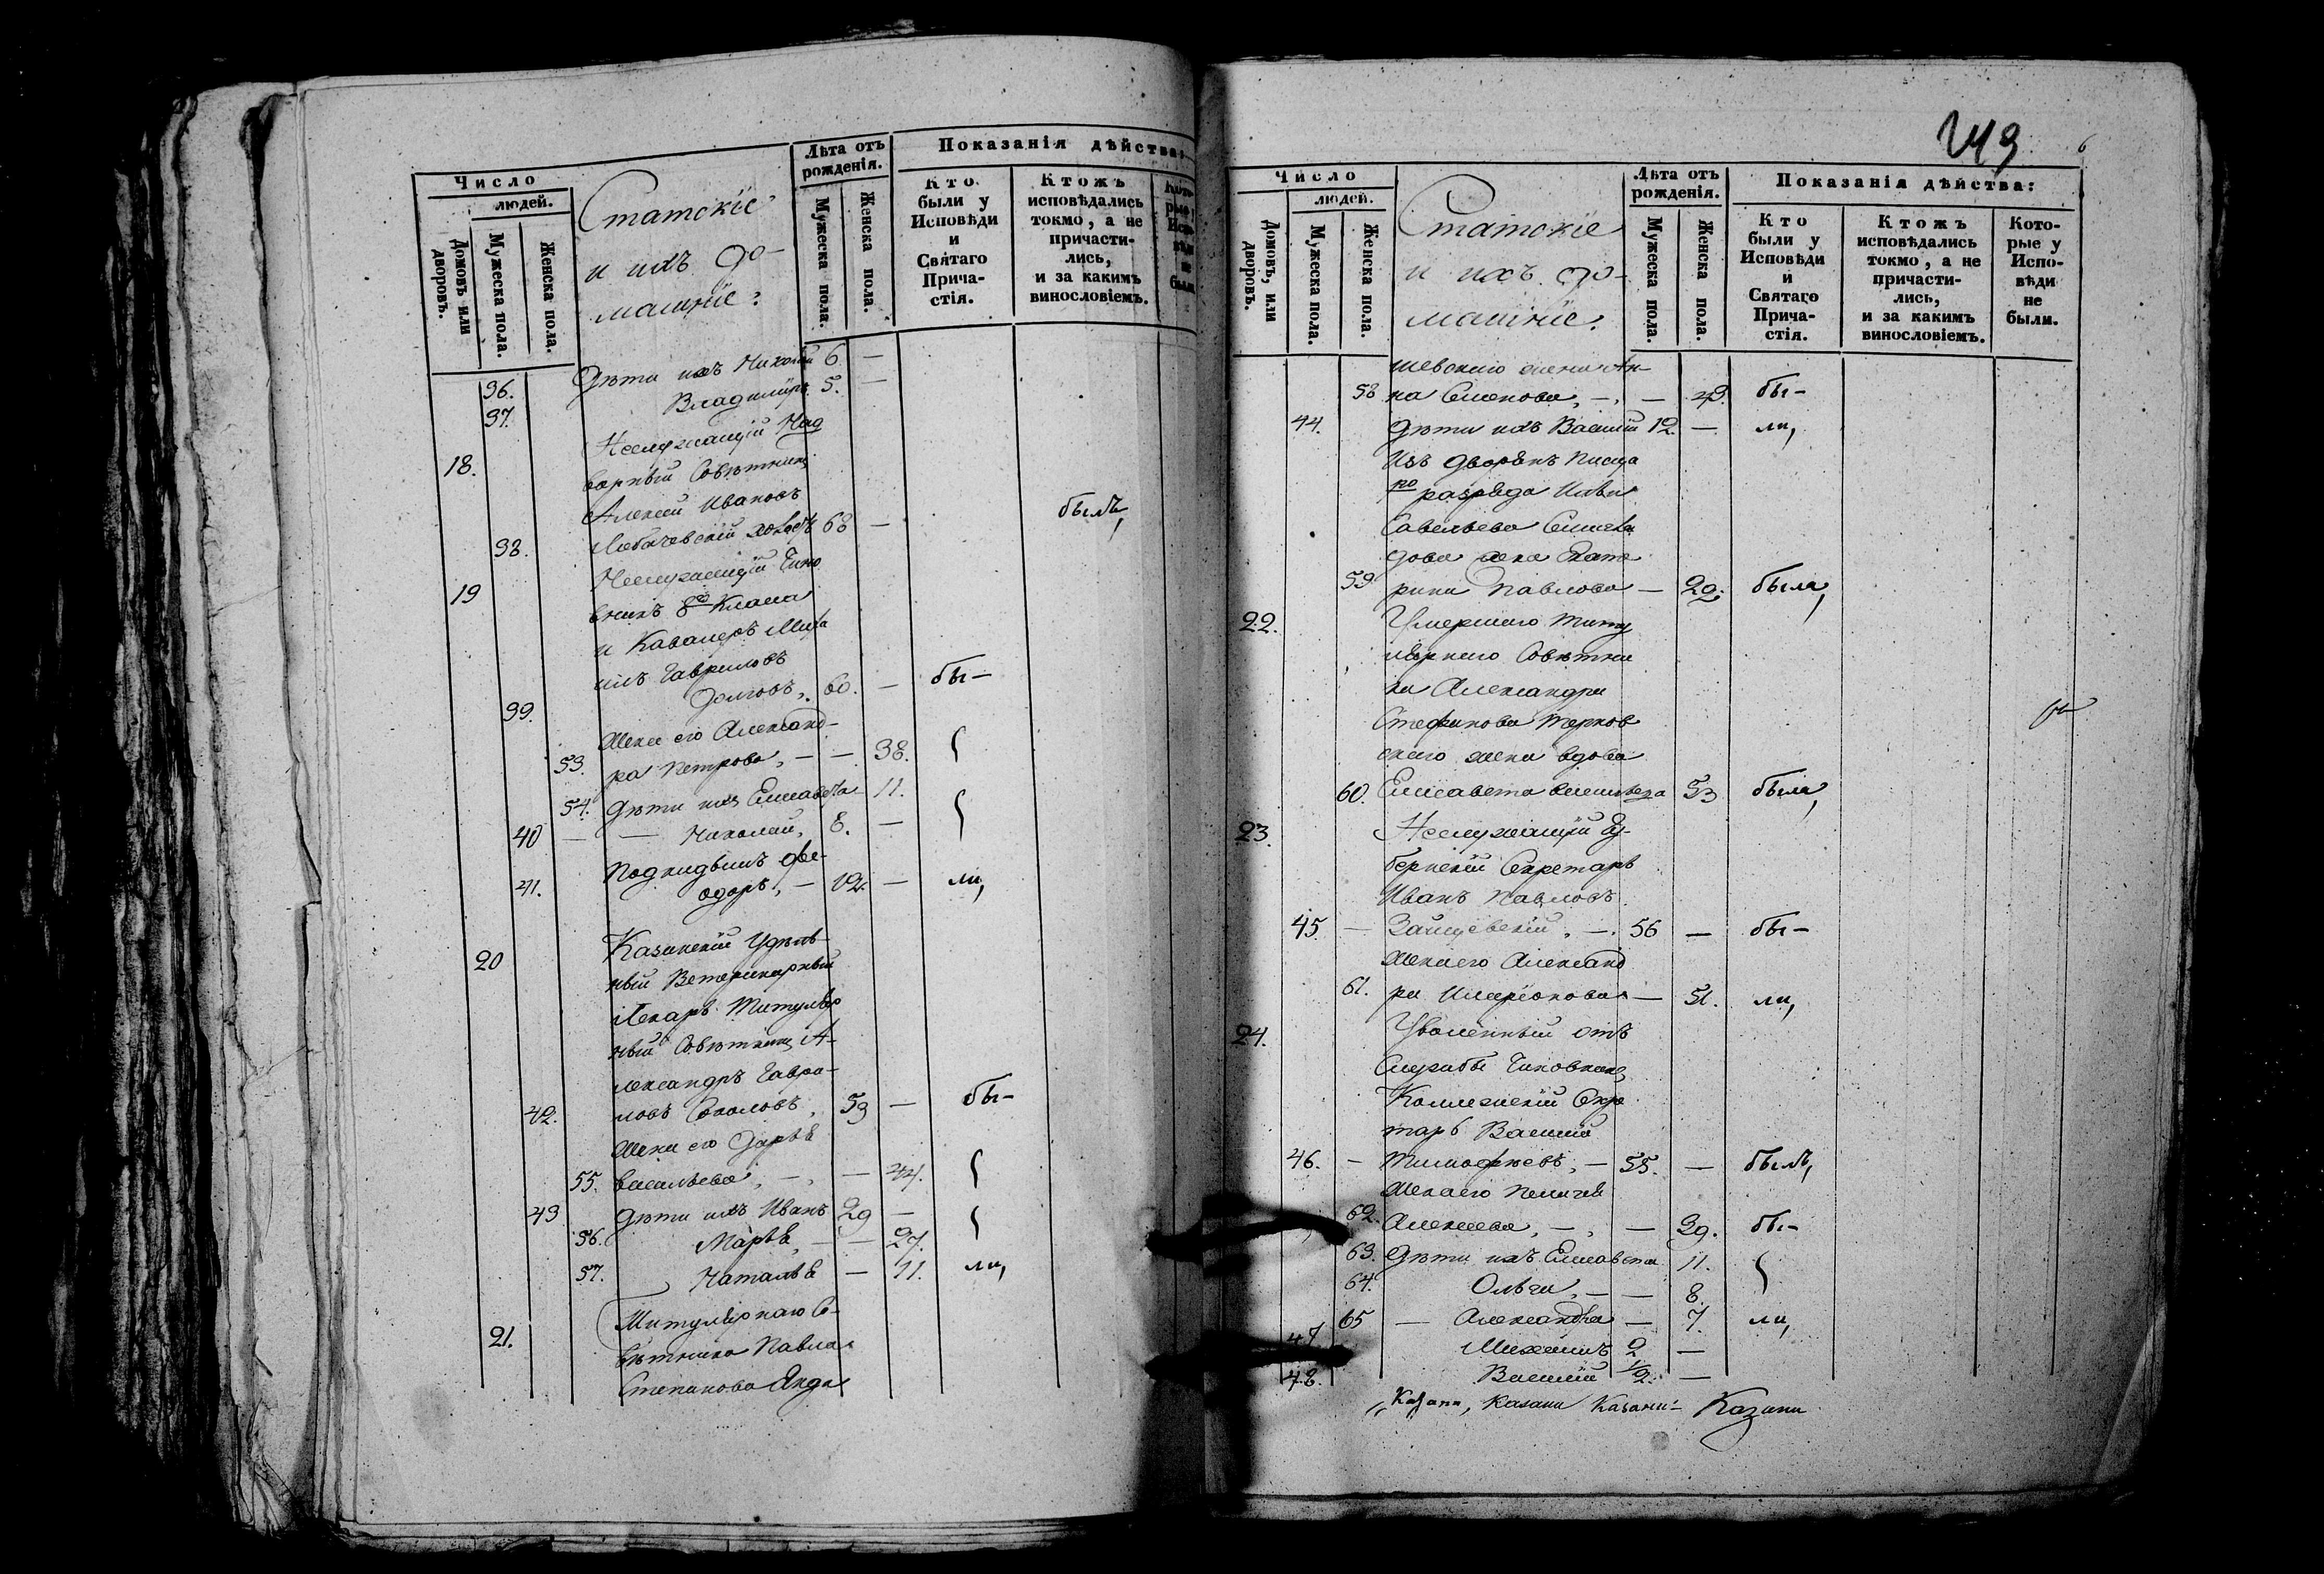 Число
людей.
Домовъ или дворовъ.
Мужеска пола.
Женска пола.
Статскіе
и ихъ до-
машніе:
Лѣта отъ рожденія.
Мужеска пола.
Женска пола.
Показанія дѣйства:
Кто были у Исповѣди и Святаго Прича-стія.
Ктожъ исповѣдались токмо, а не причасти-лись, и за какимъ винословіемъ.
36. Дѣти ихъ Николай 6. —
37. Владиміръ 5. —
Неслужащій Над
18. ворный Совѣтникъ
Алексѣй Ивановъ
38. Лобачевскій холостъ 68 — былъ,
Неслужащій Чино
19 вникъ 8го Класса
и Кавалеръ Миха
илъ Гавриловъ
39. Долговъ, 60. — бы-
Жена его Александ-
53. ра Петрова, — — 38.
54. Дѣти ихъ Елисавета 11.
40 — — Николай, 8. —
Подкидышъ Фе-
41. одоръ, — 12. — ли,
Казанскій Удѣль-
20 ный Ветеринарный
Лекарь Титуляр
ный Совѣтникъ А-
лександръ Гаври-
42. ловъ Соколовъ, 53 — бы-
Жена его Дарья
55. Васильева, — — 44.
43 Дѣти ихъ Иванъ 29 —
56. Марья, — — 27.
57. Наталья — 11. ли,
Титулярнаго Со-
21. вѣтника Павла
Степанова Янда
243
6
Число
людей.
Домовъ, или дворовъ.
Мужеска пола.
Женска пола.
Статскіе
и ихъ до-
машніе:
Лѣта отъ рожденія.
Мужеска пола.
Женска пола.
Показанія дѣйства:
Кто были у Исповѣди и Святаго Прича-стія.
Ктожъ исповѣдались токмо, а не причасти-лись, и за какимъ винословіемъ.
Кото-рые у Испо-вѣди не были.
шевскаго жена Ан-
58 на Семенова, — — 43. бы-
44. Дѣти ихъ Василій 12. — ли,
Изъ дворянъ писца
го разряда
Савельева
дова жена Екате
59 рина Павлова — 29. была,
22. Умершаго Титу
лярнаго Совѣтни
ка Александра
Стефанова Тернов
скаго жена вдова
60. Елисавета 53 была,
23. Неслужащій Гу-
бернскій Секретарь
Иванъ Павловъ
45. — — 56 — бы-
Жена его Александ
61. ра Иларіонова — 51. ли,
24. Уволенный отъ
Службы Чиновникъ
Коллежскій Секре
тарь Василій
46. — Тимофѣевъ, — 55. — былъ,
Жена его Пелагея
62. Алексѣева, — — 39. бы-
63. Дѣти ихъ Елисавета 11.
64. Ольга, — — 8.
65 — Александра — 7. ли,
47 Михаилъ 2 —
48. Василій 1/2. —
Казани, Казани Казани- Казани